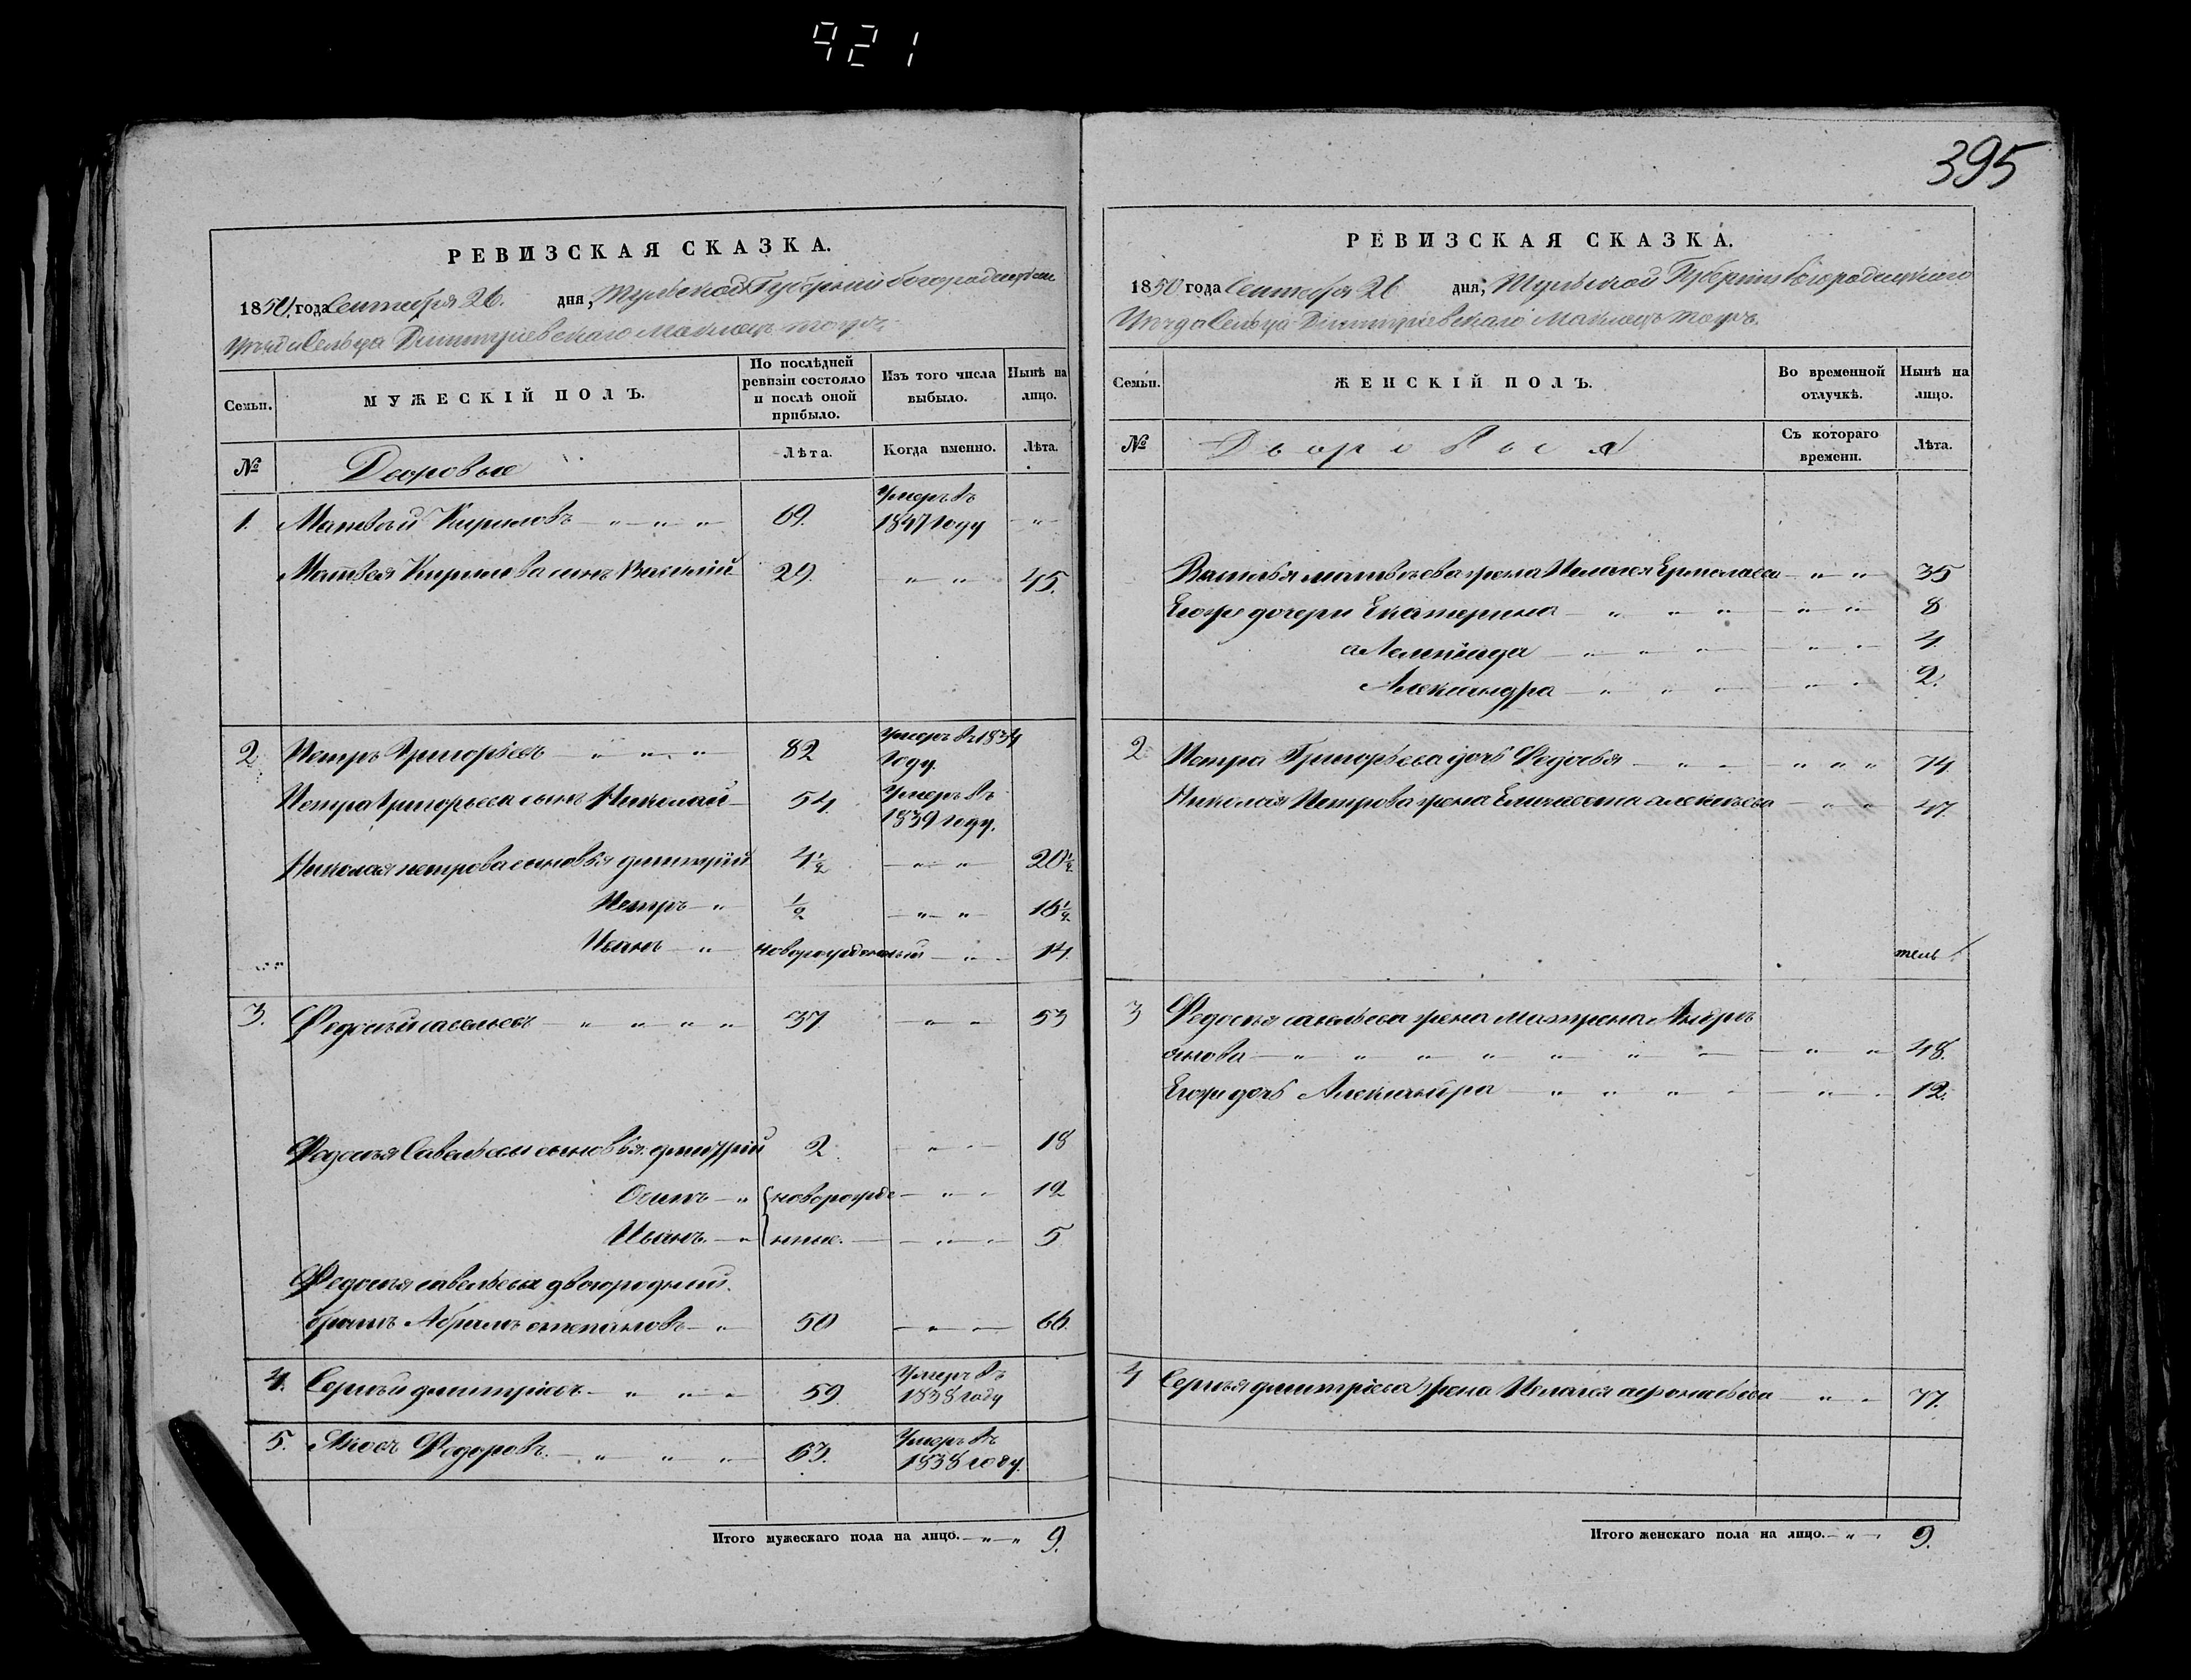 421
395
РЕВИЗСКАЯ СКАЗКА.
1850 года Сентября 26. дня, Тульской Губернии богородицкаго
Уезда Сельца Дмитриевскаго Маклецъ тожъ
Семьи.
МУЖЕСКІЙ ПОЛЪ.
По послѣдней ревизіи состояло и послѣ оной прибыло.
Изъ того числа выбыло.
Нынѣ на лицо.
№ Дворовые Лѣта. Когда именно. Лѣта.
1. Матвей Кириловъ 69. Умеръ въ 1847 году
Матвея Кирилова сынъ Василий 29. 45.
2 Петръ Григорьевъ 82 Умеръ въ 1834 году.
Петра Григорьева сынъ Николай 54. Умеръ въ 1839 году.
Николая петрова сыновья дмитрий 4½ 20½
Петръ ½ 16½
Иванъ новорожденный 14.
3. Федосѣй савельевъ 37 53
Федосѣя Савельева сыновья: дмитрий 2. 18
Осипъ новорожде 12
Иванъ нные. 5
Федосѣя савельева двоюродный
братъ Абрамъ степановъ 50 66.
4. Сергѣй дмитриевъ 59. Умеръ въ 1838 году
5. Яковъ Федоровъ 63. Умеръ въ 1838 году.
Итого мужескаго пола на лицо. 9.
РЕВИЗСКАЯ СКАЗКА.
1850 года Сентября 26 дня, Тульской Губернии богородицкаго
Уезда Сельца Дмитриевскаго Маклецъ тожъ.
Семьи.
ЖЕНСКІЙ ПОЛЪ.
Во временной отлучкѣ.
Нынѣ на лицо.
№ Дворовые Съ котораго времени. Лѣта.
Василья матвѣева жена Пелагея Ермолаева 35
Егожъ дочери Екатерина 8
Александра 2.
4.
2 Петра Григорьева дочь Федосья 74.
Николая Петрова жена Елизавета алексѣева 47.
3 Федосѣя савельева жена Матрена Андрѣ
янова 48.
Егожъ дочь Александра 12.
4 Сергѣя дмитриева жена Пелагея афонасьева 77.
Итого женскаго пола на лицо. 9.